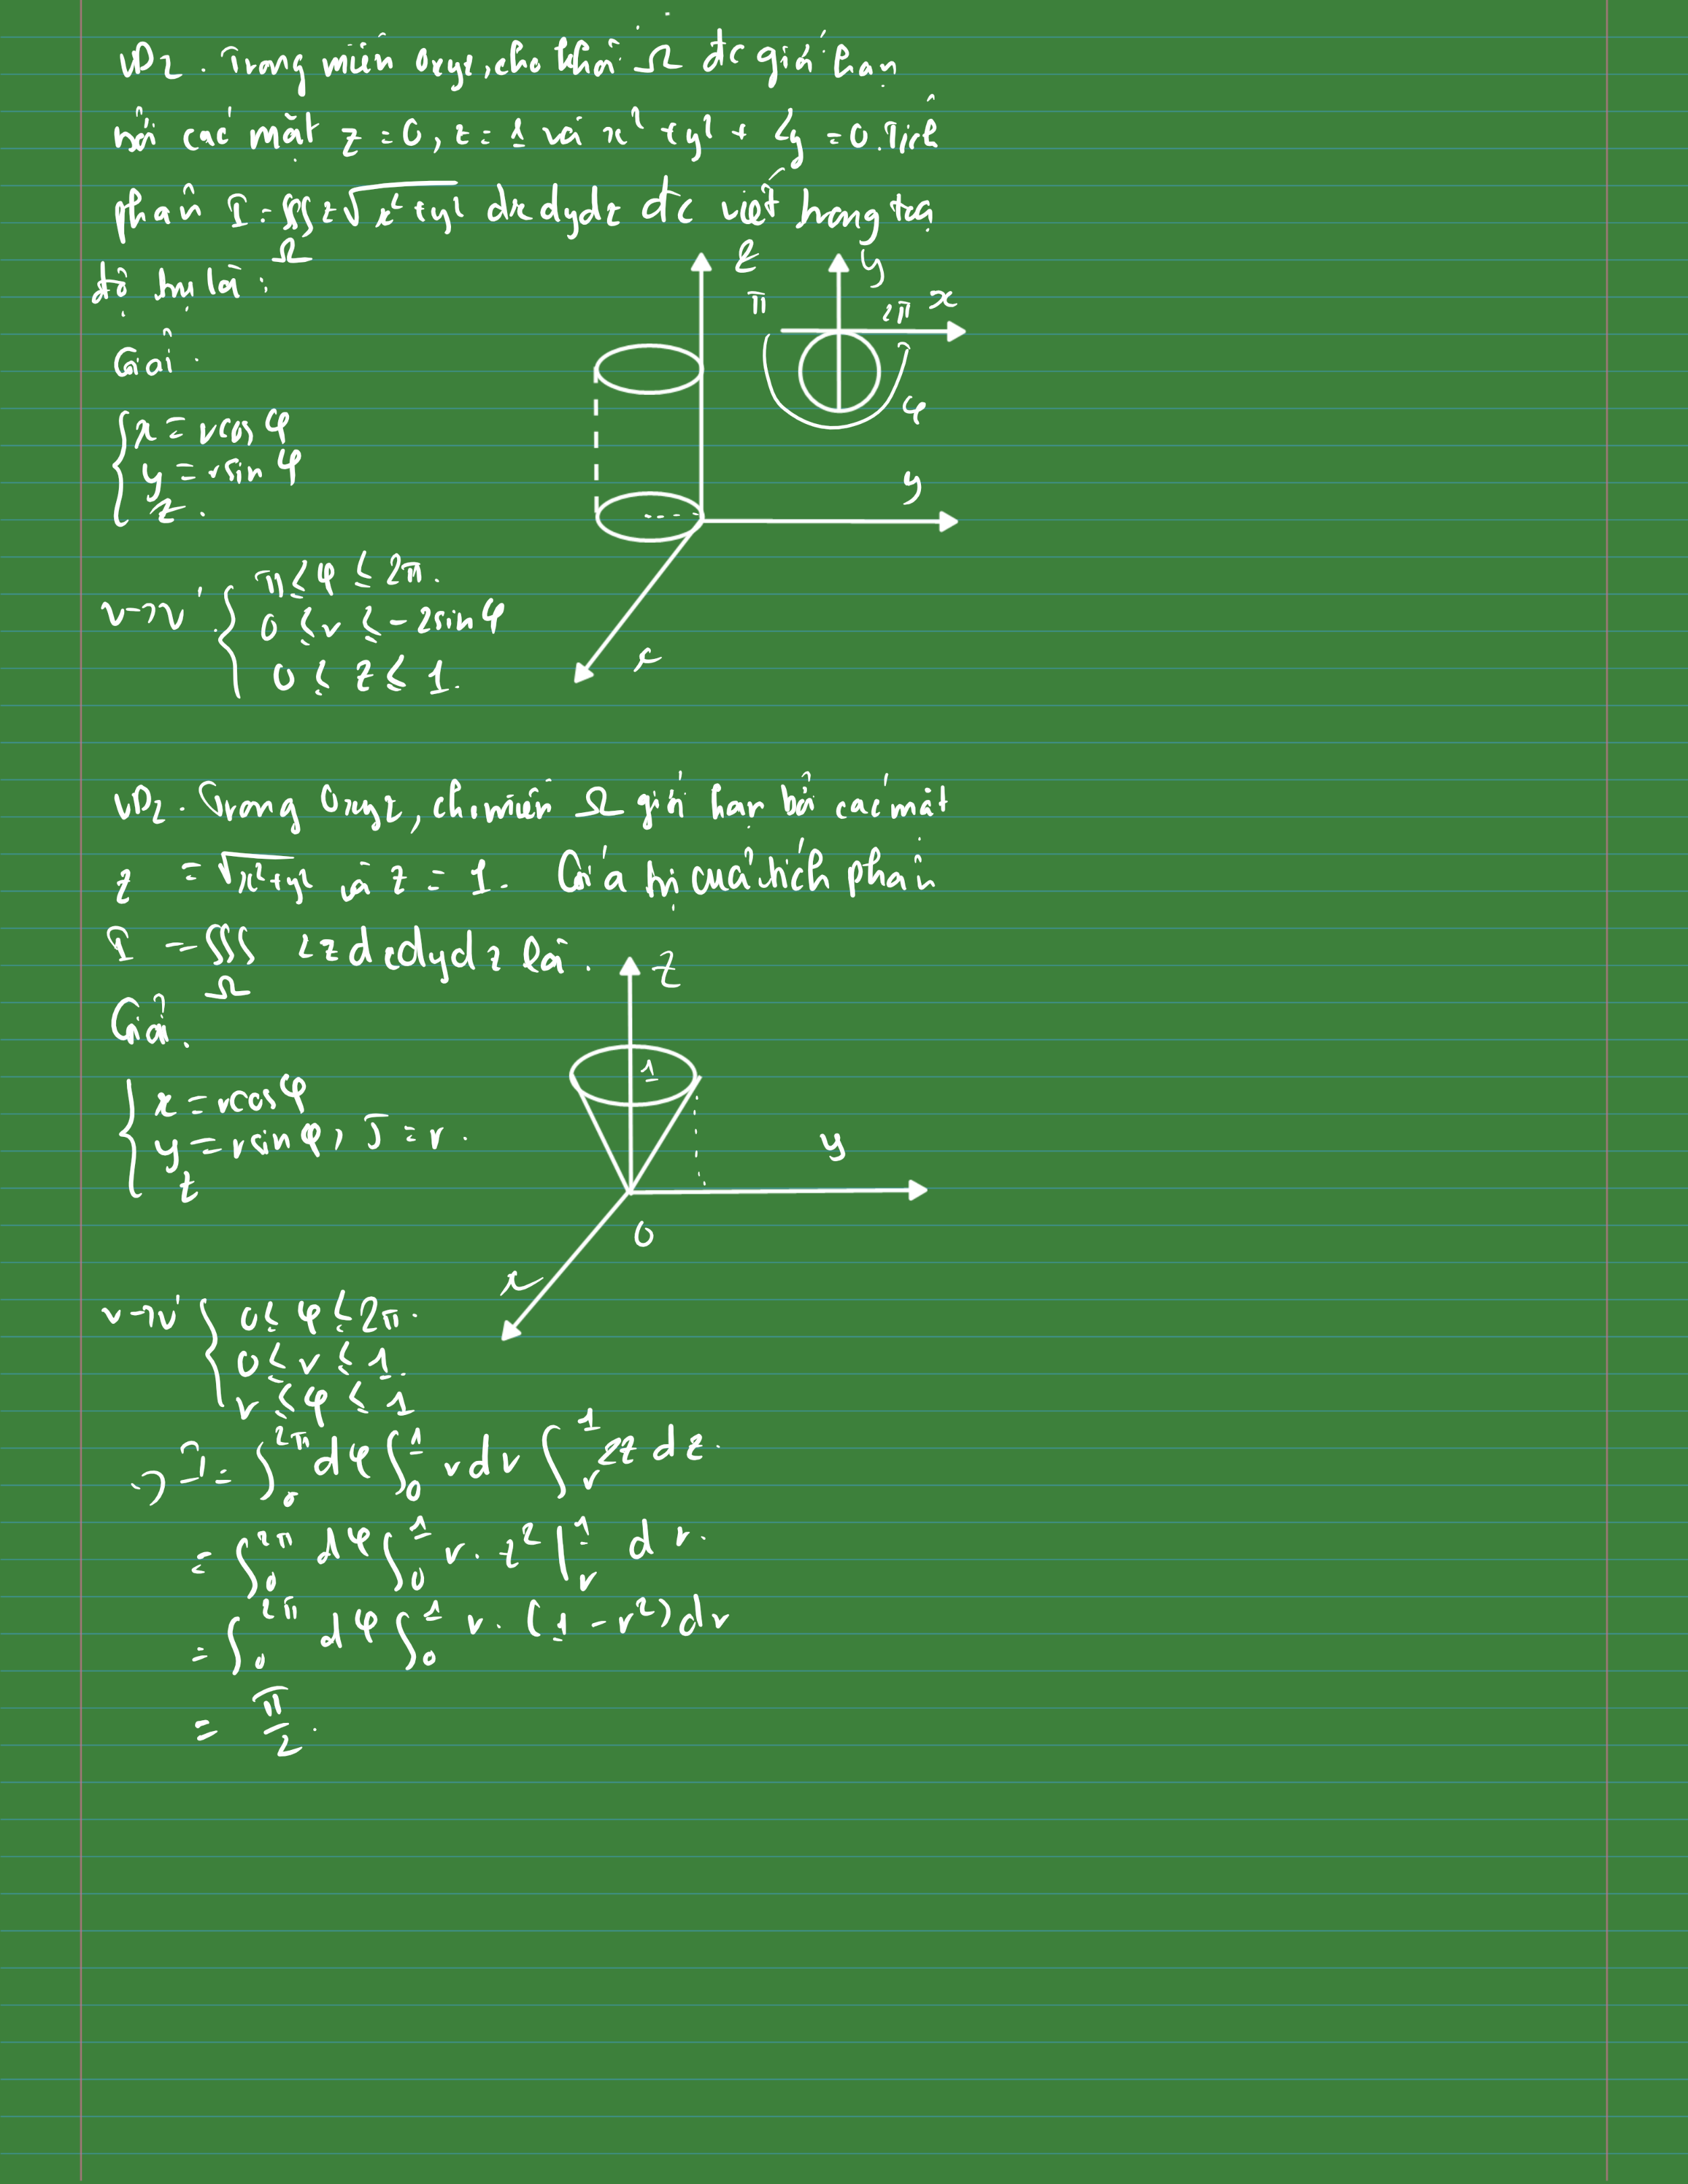 VD2. Trong miền Oxyz, cho khối Ω đc giới hạn
bởi các mặt z = 0, z = 1 và x² + y² + 2y = 0. Tích
phân I = ∭ z√x² + y² dxdydz đc viết trong tọa
Ω
độ trụ là:
Giải.
x = rcosφ
y = rsinφ
z.
z
y
π
2π
x
φ
y
x
v→v'
π ≤ φ ≤ 2π.
0 ≤ r ≤ -2sinφ
0 ≤ z ≤ 1.
VD2. Trong Oxyz, cho miền Ω giới hạn bởi các mặt
z = √x²+y² và z = 1. Giá trị của tích phân
I = ∭ 2z dxdydz là.
Ω
z
Giải.
1
x = rcosφ
y = rsinφ, J = r.
z
y
0
x
v→v'
0 ≤ φ ≤ 2π.
0 ≤ r ≤ 1.
r ≤ φ ≤ 1
→ I = ∫₀^2π dφ ∫₀^1 r dr ∫ᵣ^1 2z dz.
= ∫₀^2π dφ ∫₀^1 r. z² |ᵣ^1 dr.
= ∫₀^2π dφ ∫₀^1 r. (1 - r²) dr
= π/2.